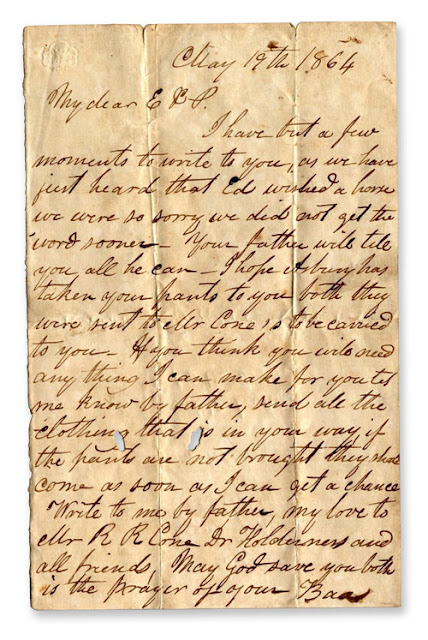 May 19th 1864
My dear E & P.
I have but a few
moments to write to you, as we have
just heard that Ed wished a horse
we were so sorry we did not get the
word sooner – Your father will tell
you all he can – I hope Asbury has
taken your pants to you both they
were sent to Mr Cone's to be carried
to you – If you think you will need
any thing I can make for you let
me know by father, send all the
clothing that is in your way if
the pants are not brought they shall
come as soon as I can get a chance
Write to me by father, my love to
Mr R R Cone Dr Holderness and
all friends, May God save you both
is the prayer of your